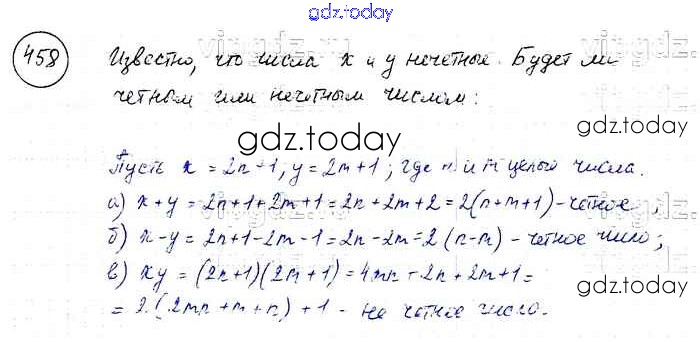 gdz.today
458 Известно, что числа x и y нечетные. Будет ли
четным или нечетным числом:
gdz.today
Пусть x = 2n+1, y = 2m+1; где n и m целые числа.
а) x+y = 2n+1+2m+1 = 2n+2m+2 = 2(n+m+1) - четное;
б) x-y = 2n+1-2m-1 = 2n-2m = 2(n-m) - четное число;
в) xy = (2n+1)(2m+1) = 4mn+2n+2m+1 =
= 2(2mn+m+n)+1 - не четное число.
gdz.today